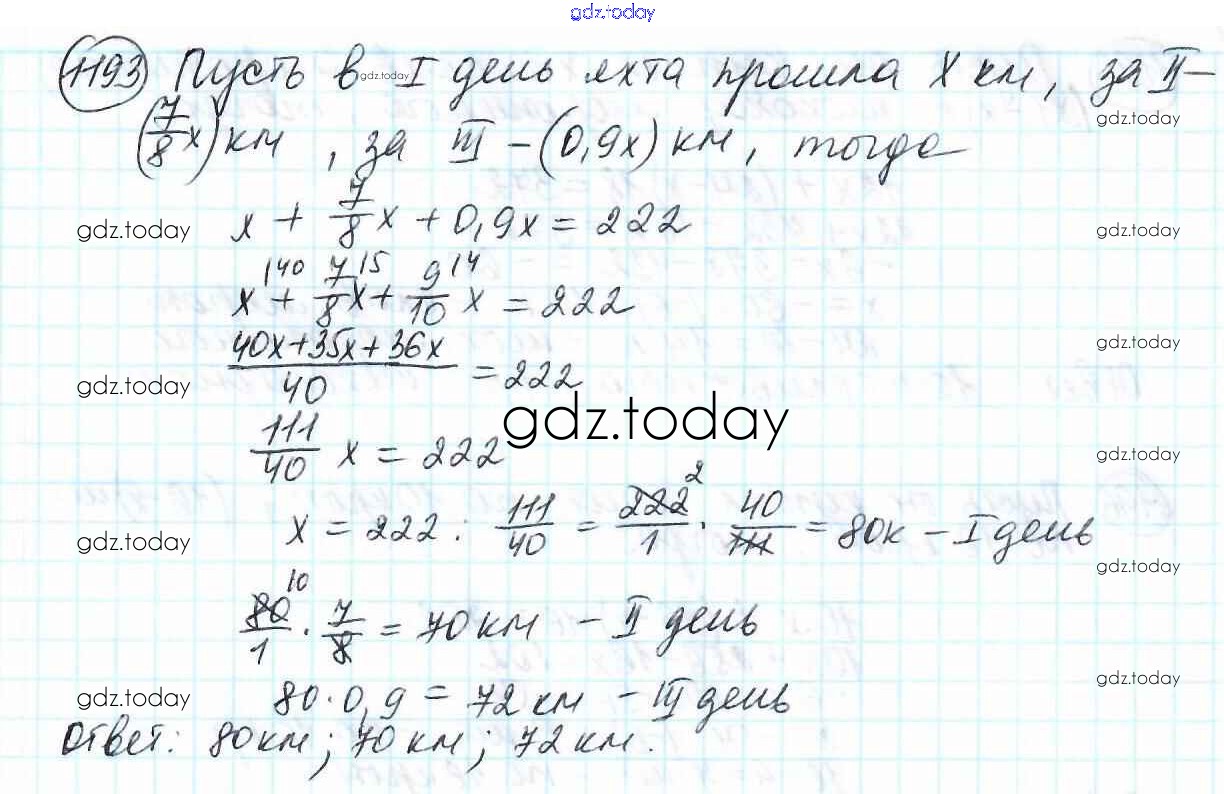 gdz.today
1193 Пусть в gdz.today I день яхта прошла x км, за II –
(7/8 x) км, за III – (0,9x) км, тогда
gdz.today
gdz.today x + 7/8 x + 0,9x = 222 gdz.today
x \40 + 7/8 x \5 + 9/10 \4 x = 222
(40x+35x+36x)/40 = 222 gdz.today
gdz.today
gdz.today
111/40 x = 222 gdz.today
gdz.today x = 222 : 111/40 = 222/1 2 · 40/111 = 80к – I день
gdz.today
80/1 10 · 7/8 = 70 км – II день
gdz.today 80 · 0,9 = 72 км – III день gdz.today
Ответ: 80 км; 70 км; 72 км.